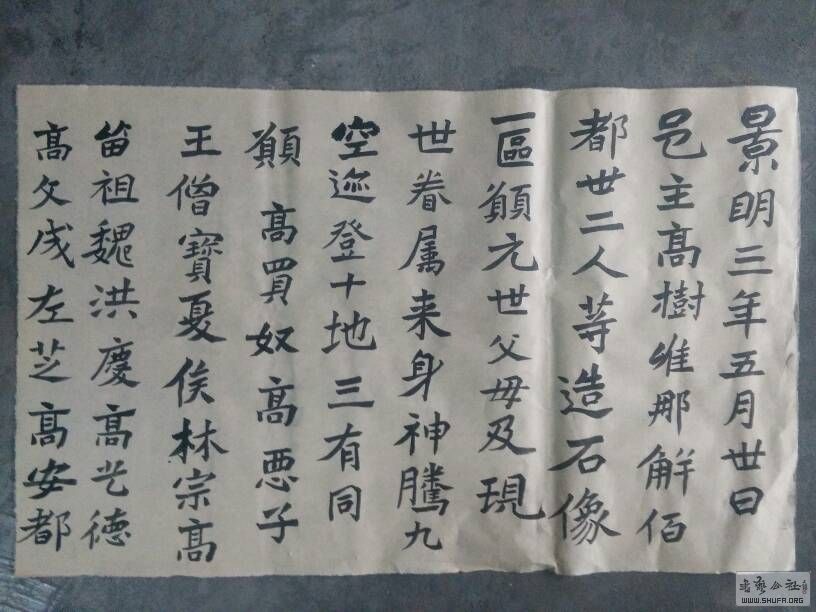 景明三年五月卅日
邑主高樹維那解佰
都卅二人等造石像
一區願元世父母及現
世眷属来身神騰九
空迹登十地三有同
願高買奴高悪子
王僧寶夏侯林宗高
留祖魏洪慶高光德
高文成左芝高安都
書藝公社
WWW.SHUFA.ORG